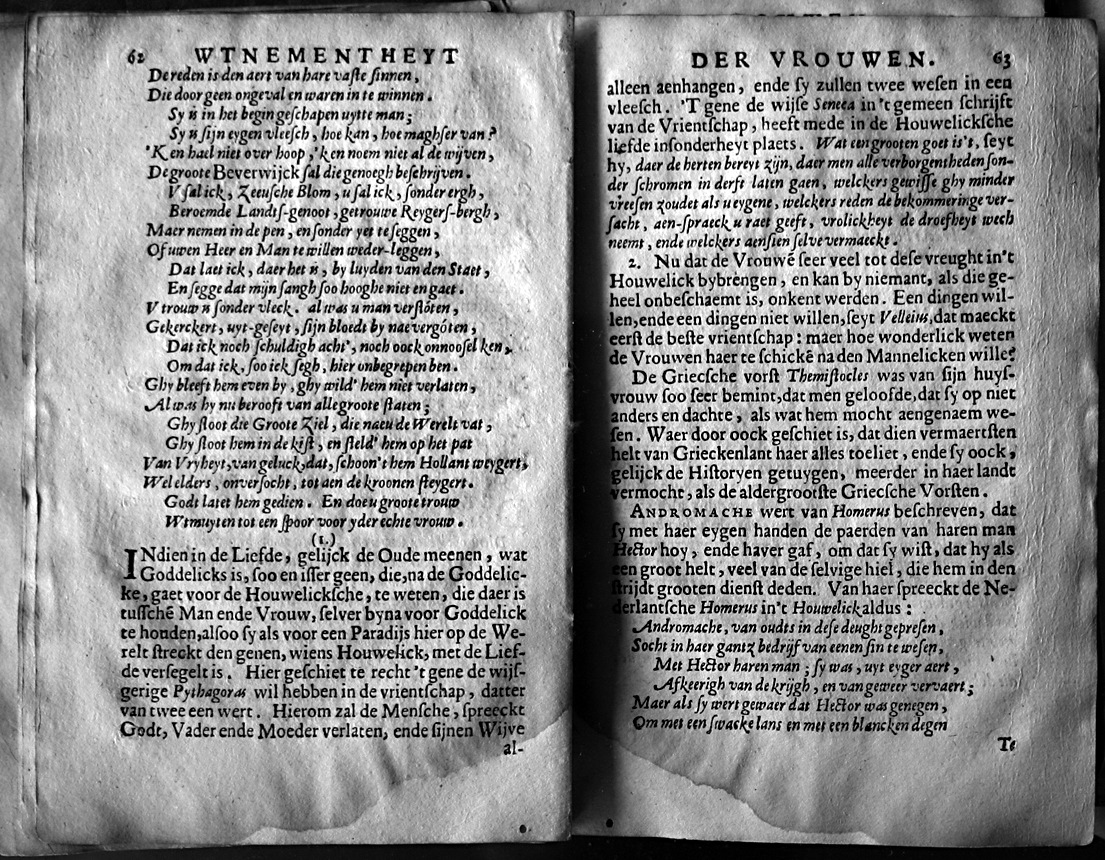 62 WTNEMENTHEYT
De reden is den aert van hare vaſte ſinnen,
Die door geen ongeval en waren in te winnen.
Sy is in het begin geſchapen uytte man;
Sy is ſijn eygen vleeſch, hoe kan, hoe maghſer van?
'K en hael niet over hoop, 'k en noem niet al de wijven,
De groote Beverwijck ſal die genoegh beſchrijven.
V ſal ick, Zeeuſche Blom, u ſal ick, ſonder ergh,
Beroemde Landtſ-genoot, getrouwe Reygerſ-bergh,
Maer nemen in de pen, en ſonder yet te ſeggen,
Of uwen Heer en Man te willen weder-leggen,
Dat laet ick, daer het is, by luyden van den Staet,
En ſegge dat mijn ſangh ſoo hooghe niet en gaet.
V trouw is ſonder vleck. al was u man verſtóten,
Gekerckert, uyt-geſeyt, ſijn bloedt by nae vergóten,
Dat ick noch ſchuldigh acht', noch oock onnooſel ken,
Om dat ick, ſoo ick ſegh, hier onbegrepen ben.
Ghy bleeft hem even by, ghy wild' hem niet verlaten,
Al was hy nu berooft van alle groote ſtaten;
Ghy ſloot die Groote Ziel, die naeu de Werelt vat,
Ghy ſloot hem in de kiſt, en ſteld' hem op het pat
Van Vryheyt, van geluck, dat, ſchoon't hem Hollant weygert,
Wel elders, onverſocht, tot aen de kroonen ſteygert.
Godt latet hem gedien. En doe u groote trouw
Wtmuyten tot een ſpoor voor yder echte vrouw.
(1.)
INdien in de Liefde, gelijck de Oude meenen, wat
Goddelicks is, ſoo en iſſer geen, die, na de Goddelic-
ke, gaet voor de Houwelickſche, te weten, die daer is
tuſſchē Man ende Vrouw, ſelver byna voor Goddelick
te houden, alſoo ſy als voor een Paradijs hier op de We-
relt ſtreckt den genen, wiens Houwelick, met de Lief-
de verſegelt is. Hier geſchiet te recht 't gene de wijſ-
gerige Pythagoras wil hebben in de vrientſchap, datter
van twee een wert. Hierom zal de Menſche, ſpreeckt
Godt, Vader ende Moeder verlaten, ende ſijnen Wijve
al-
DER VROUWEN. 63
alleen aenhangen, ende ſy zullen twee weſen in een
vleeſch. 'T gene de wijſe Seneca in 't gemeen ſchrijft
van de Vrientſchap, heeft mede in de Houwelickſche
liefde inſonderheyt plaets. Wat een grooten goet is't, ſeyt
hy, daer de herten bereyt zijn, daer men alle verborgentheden ſon-
der ſchromen in derft laten gaen, welckers gewiſſe ghy minder
vreeſen zoudet als u eygene, welckers reden de bekommeringe ver-
ſacht, aen-ſpraeck u raet geeft, vrolickheyt de droefheyt wech
neemt, ende welckers aenſien ſelve vermaeckt.
2. Nu dat de Vrouwē ſeer veel tot deſe vreught in't
Houwelick bybrengen, en kan by niemant, als die ge-
heel onbeſchaemt is, onkent werden. Een dingen wil-
len, ende een dingen niet willen, ſeyt Velleius, dat maeckt
eerſt de beſte vrientſchap: maer hoe wonderlick weten
de Vrouwen haer te ſchickē na den Mannelicken wille?
De Griecſche vorſt Themiſtocles was van ſijn huyſ-
vrouw ſoo ſeer bemint, dat men geloofde, dat ſy op niet
anders en dachte, als wat hem mocht aengenaem we-
ſen. Waer door oock geſchiet is, dat dien vermaertſten
helt van Grieckenlant haer alles toeliet, ende ſy oock,
gelijck de Hiſtoryen getuygen, meerder in haer landt
vermocht, als de aldergrootſte Griecſche Vorſten.
ANDROMACHE wert van Homerus beſchreven, dat
ſy met haer eygen handen de paerden van haren man
Hector hoy, ende haver gaf, om dat ſy wiſt, dat hy als
een groot helt, veel van de ſelvige hiel, die hem in den
ſtrijdt grooten dienſt deden. Van haer ſpreeckt de Ne-
derlantſche Homerus in't Houwelick aldus:
Andromache, van oudts in deſe deught gepreſen,
Socht in haer gantz bedrijf van eenen ſin te weſen,
Met Hector haren man; ſy was, uyt eyger aert,
Afkeerigh van de krijgh, en van geweer vervaert;
Maer als ſy wert gewaer dat Hector was genegen,
Om met een ſwacke lans en met een blancken degen
Te